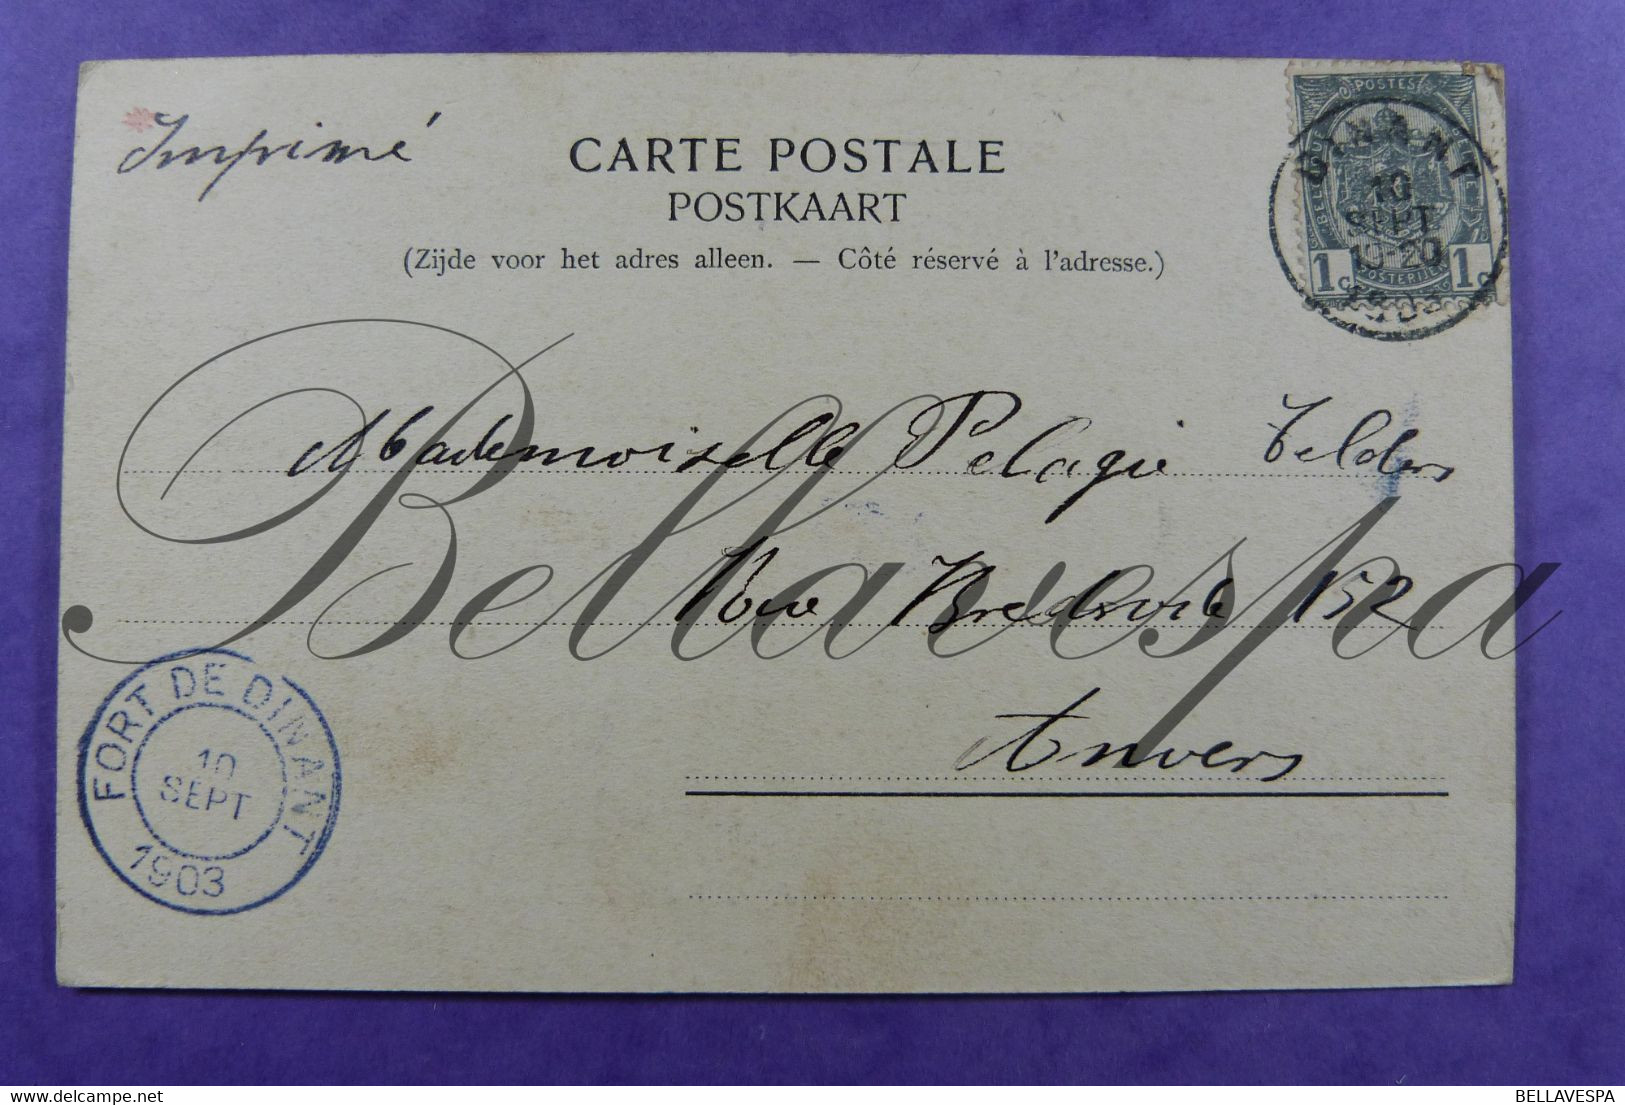 Imprimé
CARTE POSTALE
POSTKAART
(Zijde voor het adres alleen. — Côté réservé à l'adresse.)
POSTES
1c 1c
POSTERIJEN
DINANT
10
SEPT
10-20
1903
Mademoiselle Pelagie Telders
Rue 152
Anvers
FORT DE DINANT
10
SEPT
1903
Bellavespa
BELLAVESPA